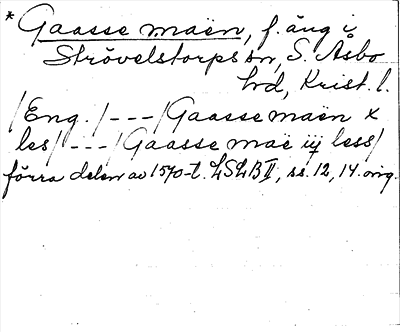 * Gaasse maën, f. äng i
Strövelstorps sn, S. Åsbo
hd, Krist. l.
/Eng./ --- /Gaasse maën x
les/ --- /Gaasse maë iij less/
förra delen av 1570-t. LSLB II, ss. 12, 14. orig.